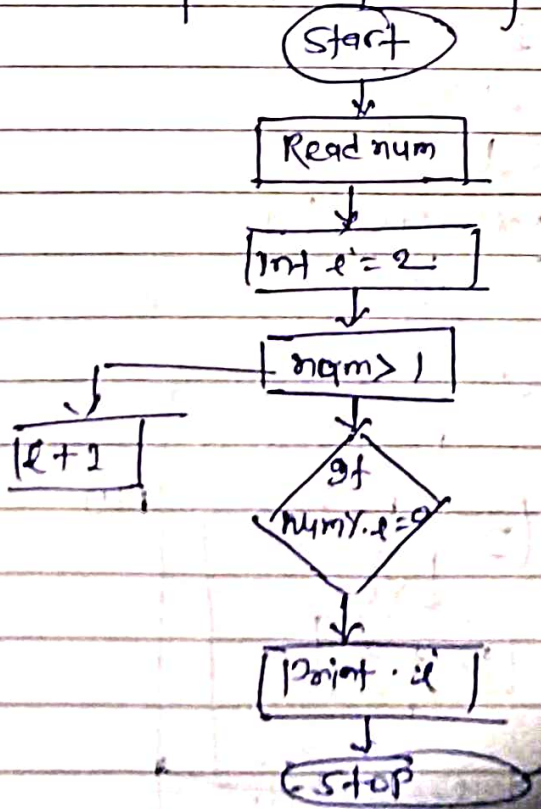 Start
Read num
Int i = 2
num > 1
i + 1
If
num % i = 0
Print i
Stop